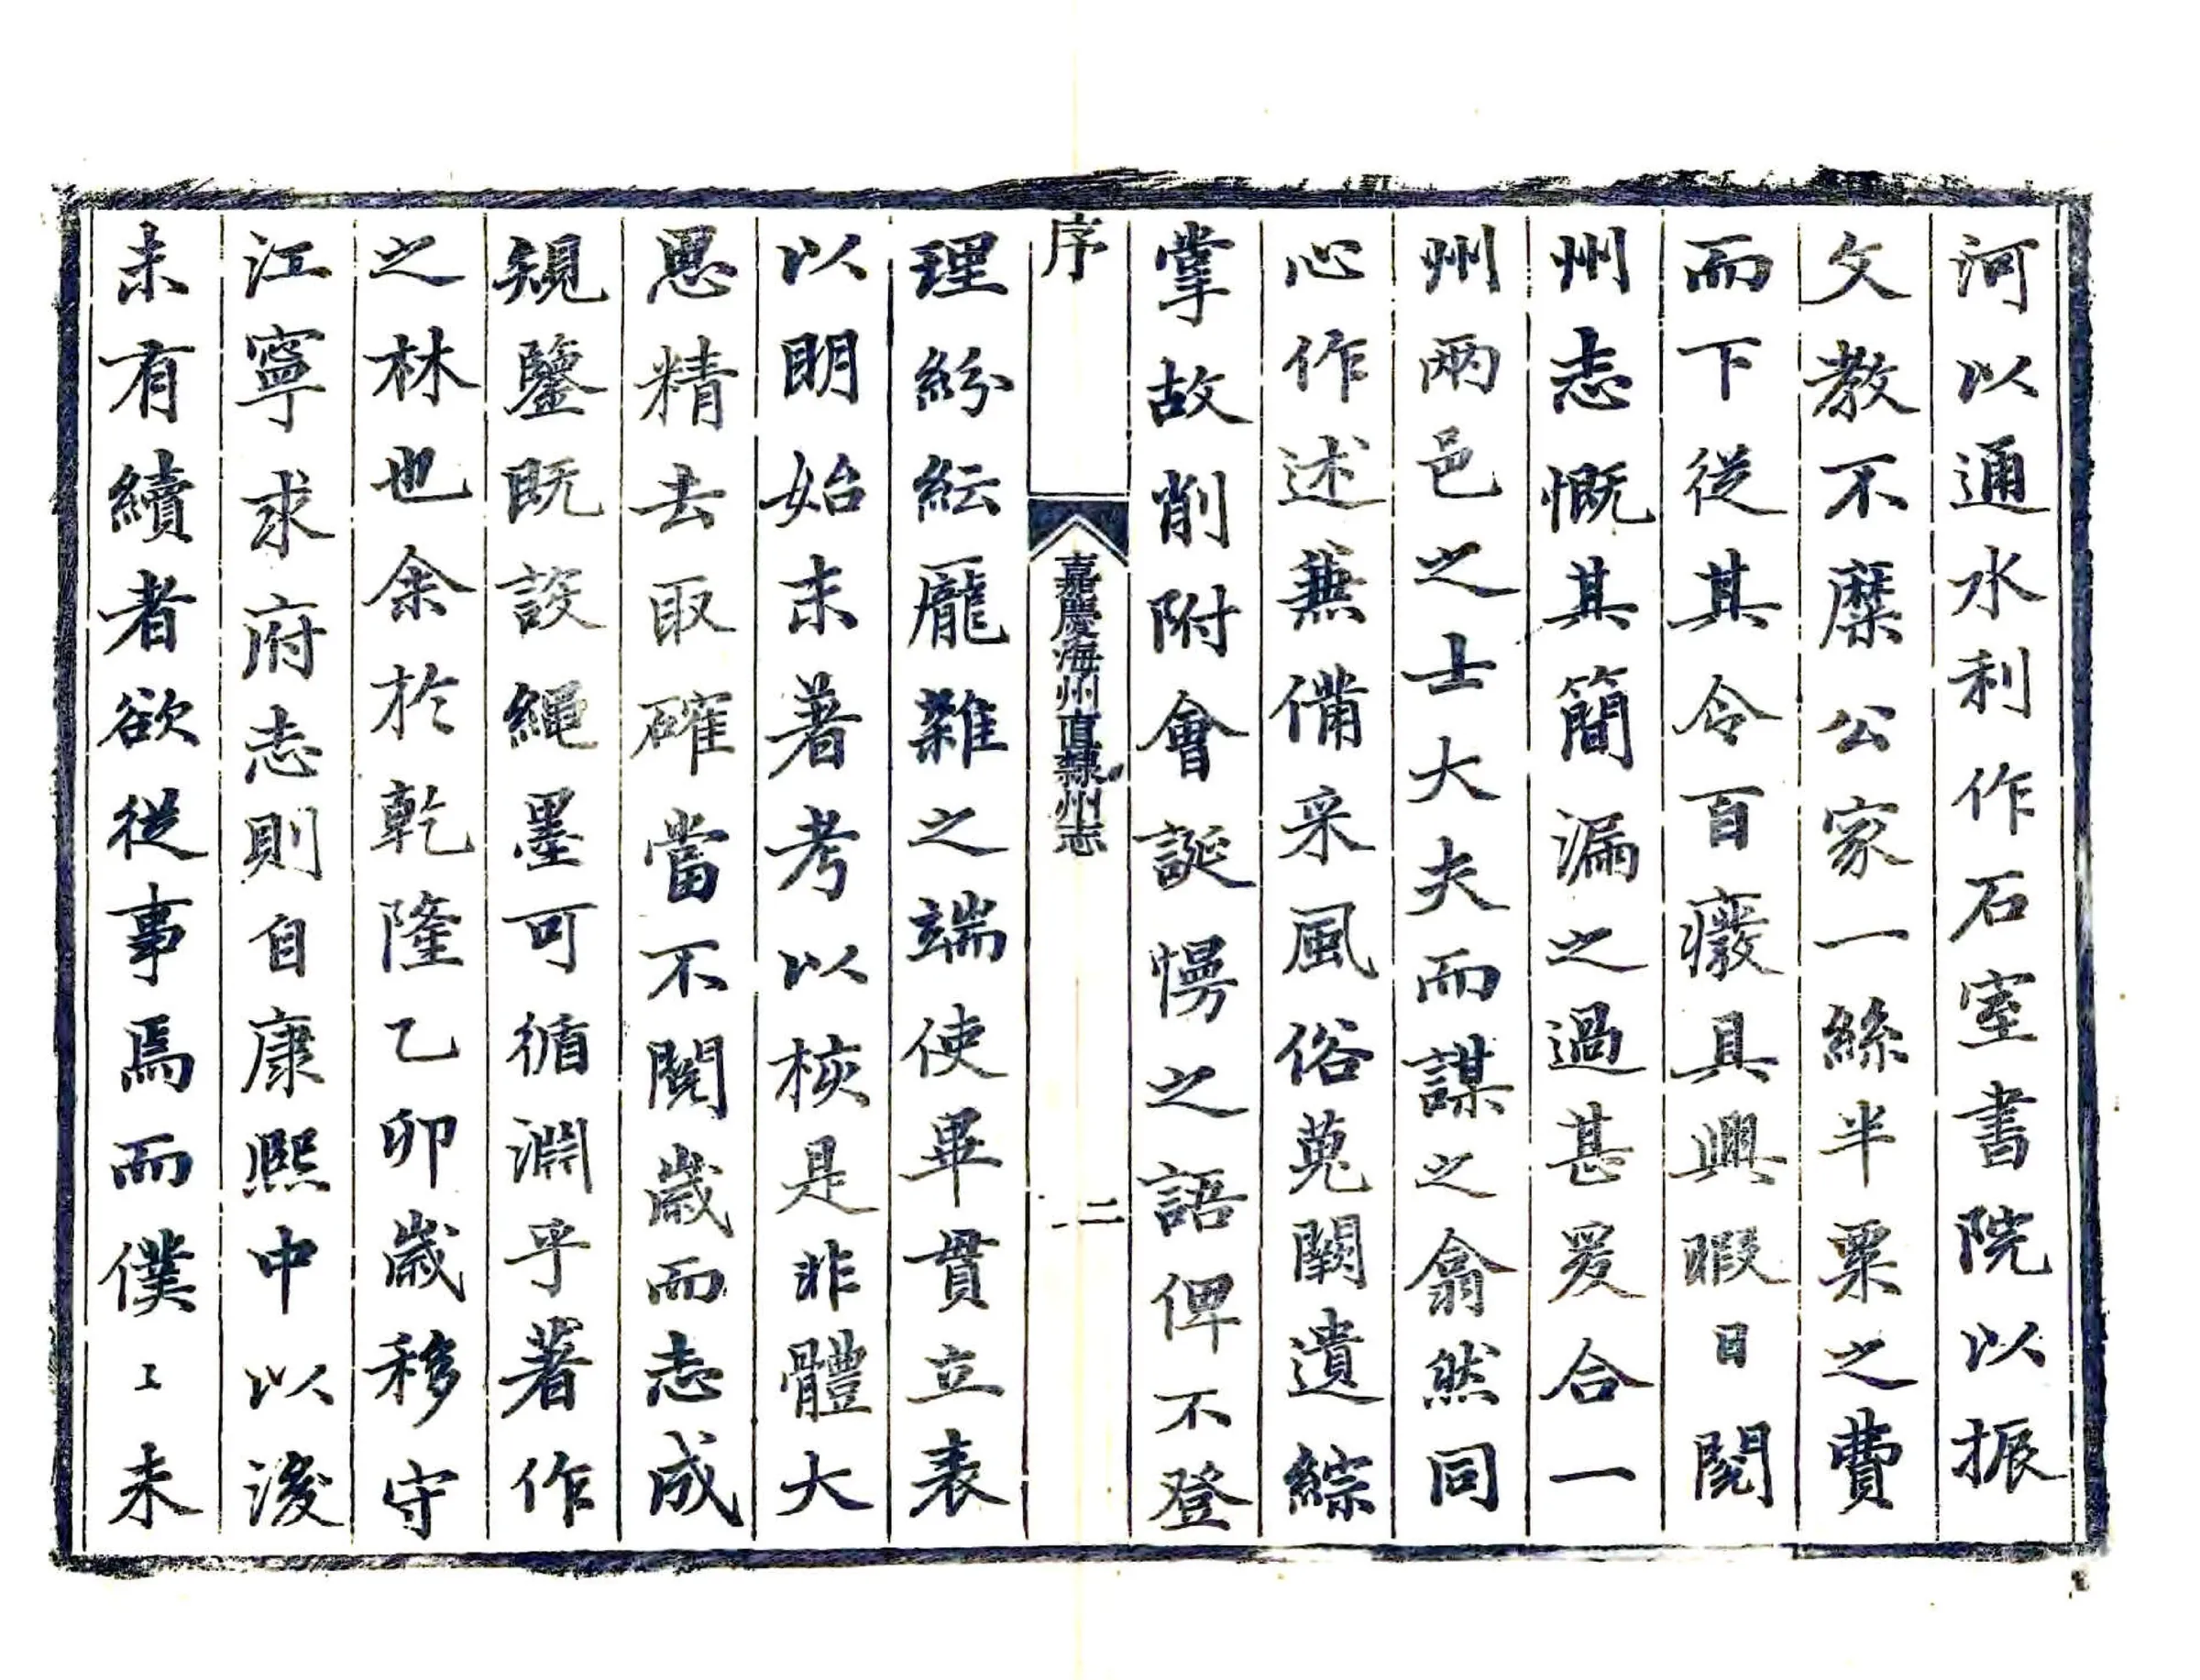 河以通水利作石室書院以振
文教不糜公家一絲半粟之費
而下從其令百癈具興暇日閱
州志慨其簡漏之過甚爰合一
州兩邑之士大夫而謀之翕然同
心作述兼備采風俗蒐闕遺綜
掌故削附會誕慢之語俾不登
序
嘉慶海州直隸州志
二
理紛紜龐雜之端使畢貫立表
以明始末著考以核是非體大
思精去取確當不閱歲而志成
規鑒既設繩墨可循淵乎著作
之林也余於乾隆乙卯歲移守
江寧求府志則自康熙中以後
未有續者欲從事焉而僕〻未